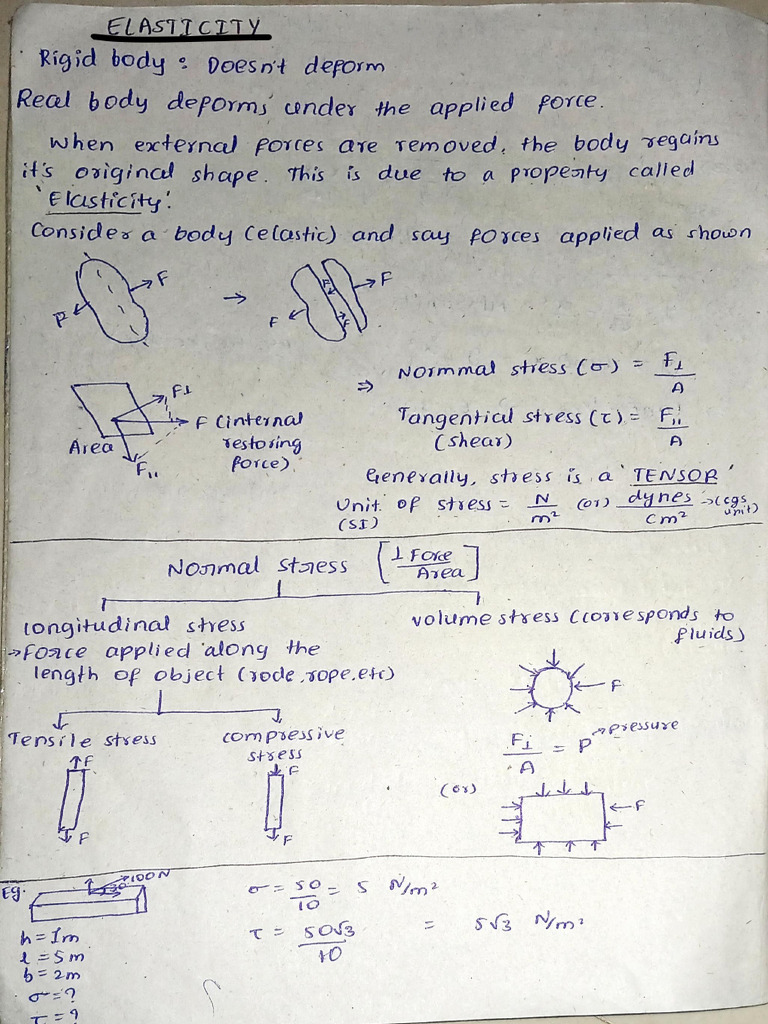 ELASTICITY
Rigid body : Doesn't deform
Real body deforms under the applied force.
When external forces are removed, the body regains
it's original shape. This is due to a property called
'Elasticity'.
Consider a body (elastic) and say forces applied as shown
F F → F F
F F
Normmal stress (σ) = F⊥/A
F⊥
⇒
Area
F (internal restoring force)
F||
Tangential stress (τ) = F||/A
(shear)
Generally, stress is a 'TENSOR'
Unit of stress = N/m² (or) dynes/cm² → (cgs unit)
(SI)
Normal stress [⊥ Force/Area]
longitudinal stress
→ Force applied along the
length of object (rode, rope, etc)
volume stress (corresponds to
fluids)
F
F⊥/A = P → pressure
(or)
F
Tensile stress
F
F
compressive
stress
F
F
Eg.
100N
30
h = 1m
l = 5m
b = 2m
σ = ?
τ = ?
σ = 50/10 = 5 N/m²
τ = 50√3/10 = 5√3 N/m²